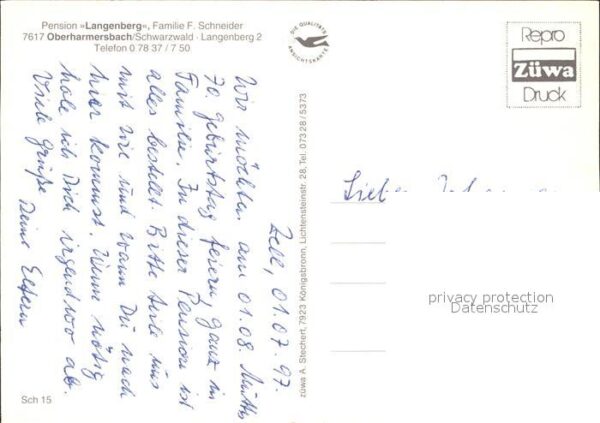 Pension »Langenberg«, Familie F. Schneider
7617 Oberharmersbach/Schwarzwald · Langenberg 2
Telefon 0 78 37 / 7 50
DIE QUALITÄTS
ANSICHTSKARTE
Repro
Züwa
Druck
Zell, 01.07.97.
Wir möchten am 01.08. Muttis
70 Geburtstag feiern, ganz in
Familie. In dieser Pension ist
alles bestellt. Bitte teile uns
mit wie und wann Du nach
hier kommst. Wenn nötig
hole ich Dich irgendwo ab.
Viele Grüße
Deine Eltern
züwa A. Stechert, 7923 Königsbronn, Lichtensteinstr. 28, Tel. 07328/5373
Lieber
privacy protection
Datenschutz
Sch 15